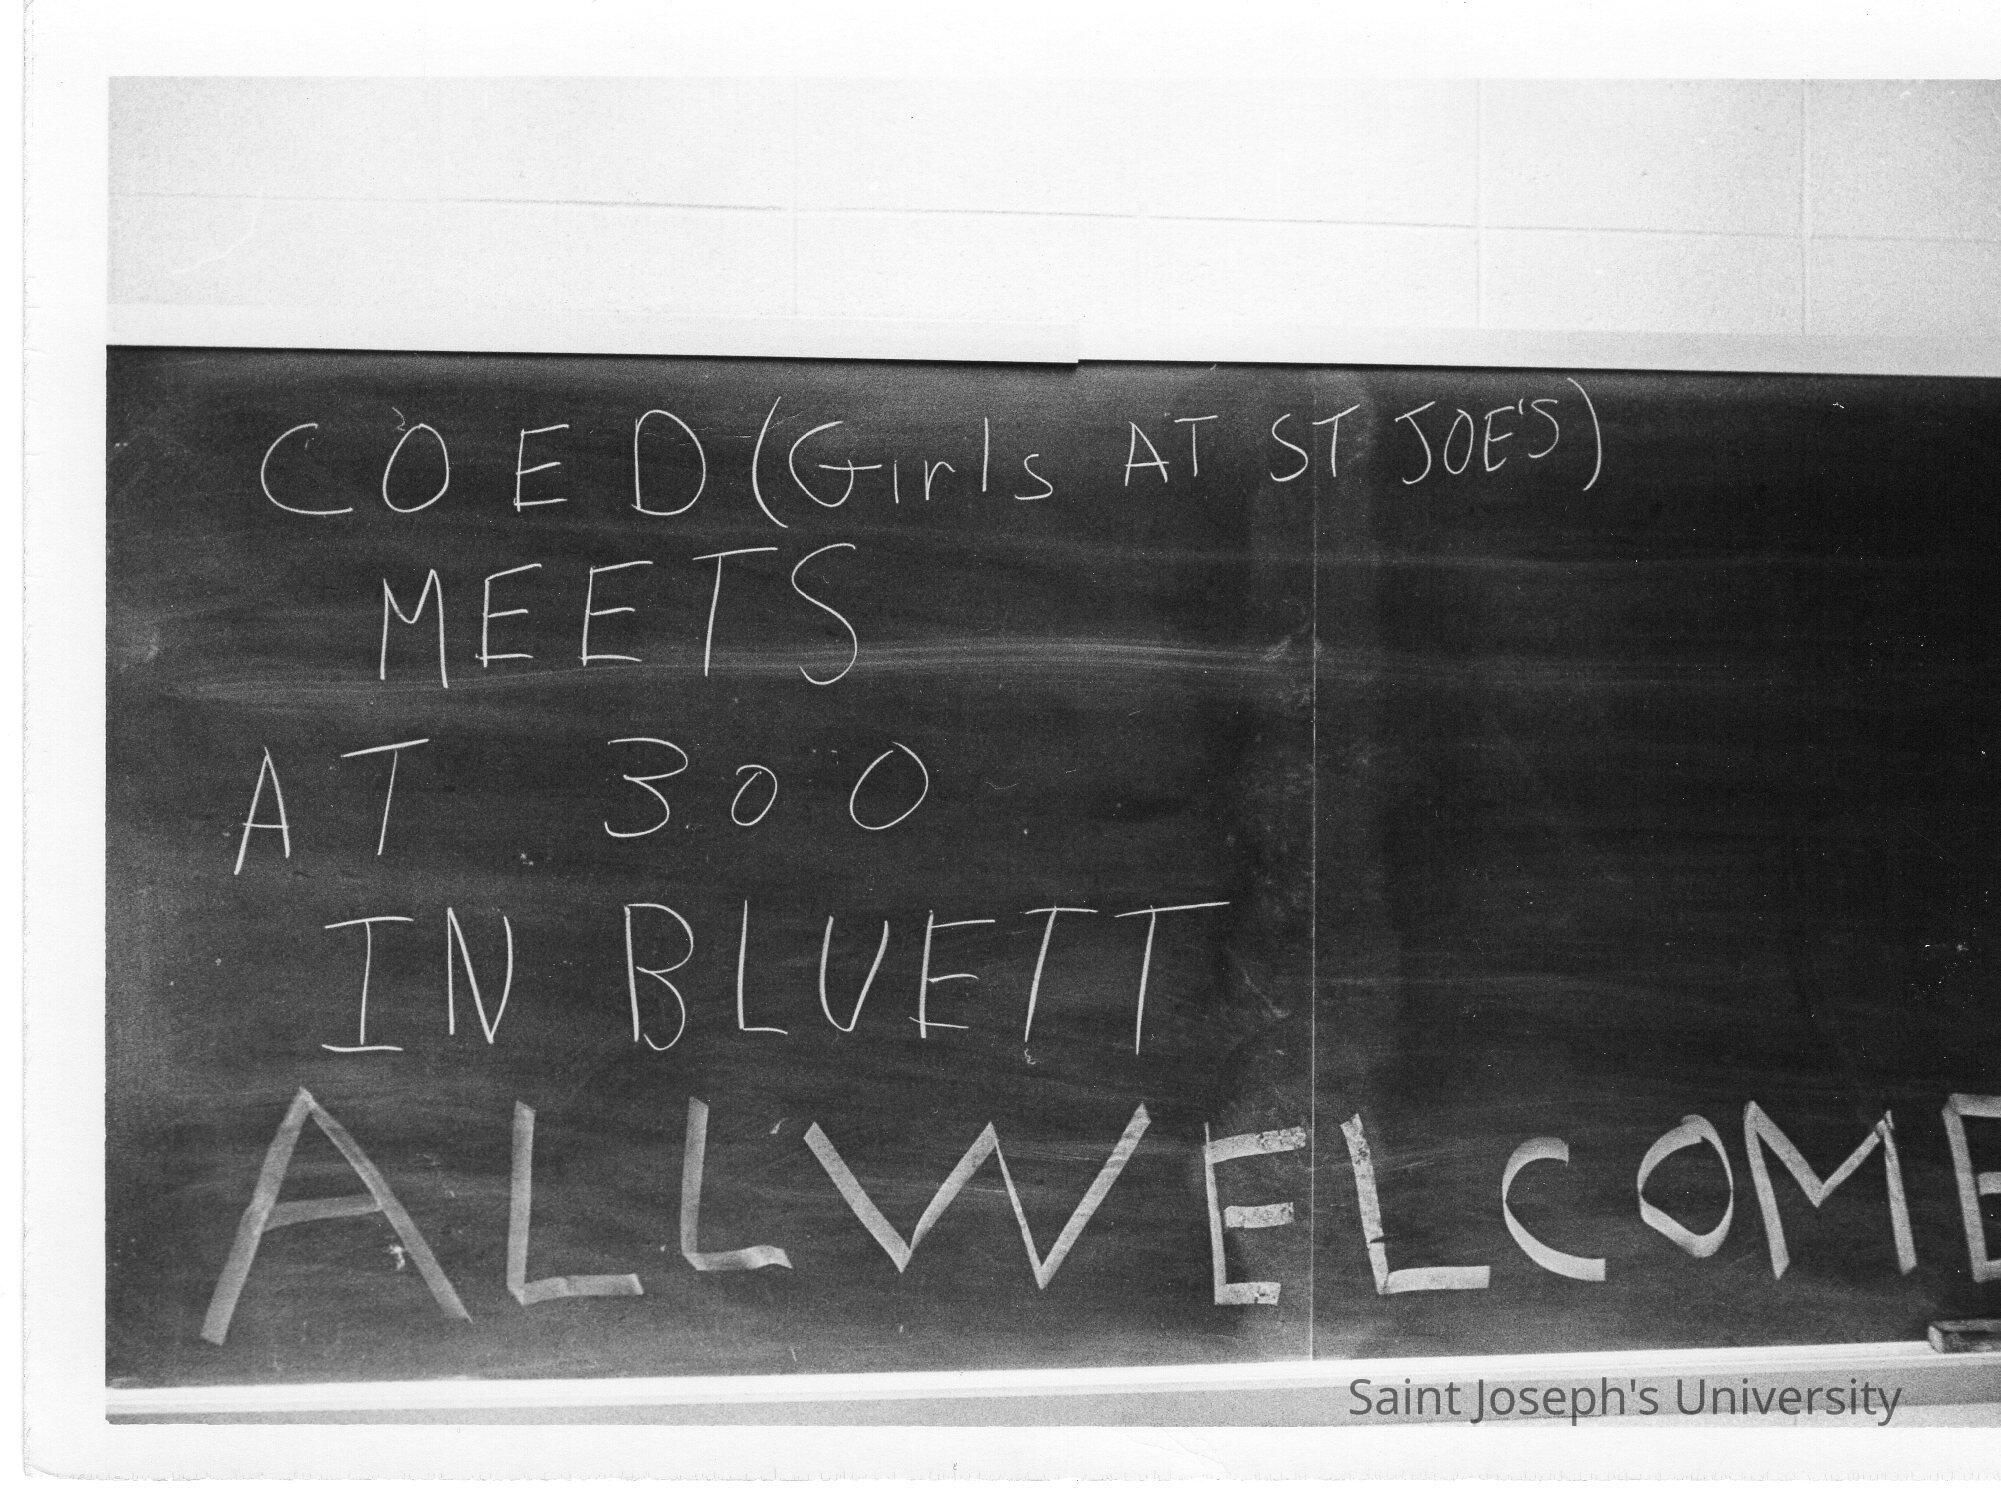 COED (Girls AT ST JOE'S)
MEETS
AT 300
IN BLUETT
ALL WELCOME
Saint Joseph's University